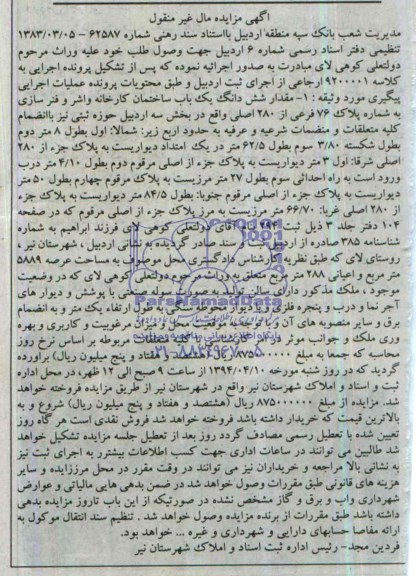 آگهی مزایده مال غیر منقول
مدیریت شعب بانک سپه منطقه اردبیل بااستناد سند رهنی شماره ۶۲۵۸۷ – ۱۳۸۳/۰۳/۰۵
تنظیمی دفتر اسناد رسمی شماره ۶ اردبیل جهت وصول طلب خود علیه وراث مرحوم
دولتعلی کوهی لای مبادرت به صدور اجرائیه نموده که پس از تشکیل پرونده اجرایی به
کلاسه ۹۲۰۰۰۰۱ ارجاعی از اجرای ثبت اردبیل و طبق محتویات پرونده عملیات اجرایی
پیگیری مورد وثیقه : ۱- مقدار شش دانگ یک باب ساختمان کارخانه واشر و فنر سازی
به شماره پلاک ۷۶ فرعی از ۲۸۰ اصلی واقع در بخش سه اردبیل حوزه ثبتی نیز باانضمام
کلیه متعلقات و منضمات شرعیه و عرفیه به حدود اربع زیر: شمالا: اول بطول ۸ متر دوم
بطول شکسته ۳/۸۰ سوم بطول ۶۲/۵ متر در یک امتداد دیواریست به پلاک جزء از ۲۸۰
اصلی شرقا: اول ۳ متر دیواریست به پلاک جزء از اصلی مرقوم دوم بطول ۴/۱۰ متر درب
ورود است به راه احداثی سوم بطول ۲۷ متر مرزیست به پلاک مرقوم چهارم بطول ۵۰ متر
دیواریست به پلاک جزء از اصلی مرقوم جنوبا: بطول ۸۴/۵ متر دیواریست به پلاک جزء
از ۲۸۰ اصلی غربا: ۶۶/۷۰ متر مرزیست به مرز پلاک جزء از اصلی مرقوم که در صفحه
۱۰۴ دفتر جلد ۳ ذیل ثبت ۲۹۴ بنام آقای دولتعلی کوهی لای فرزند ابراهیم به شماره
شناسنامه ۳۸۵ صادره از اردبیل ثبت و سند صادر گردیده به نشانی اردبیل ، شهرستان نیر ،
روستای لای که طبق نظریه کارشناس دادگستری محل موصوف به مساحت عرصه ۵۸۸۹
متر مربع و اعیانی ۲۸۸ متر مربع متعلق به وراث مرحوم دولتعلی کوهی لای که در وضعیت
موجود ، ملک مذکور دارای سالن تولید به صورت سوله صنعتی با پوشش و دیوار های
آجر نما و درب و پنجره فلزی و با دیوار محوطه سنگی به طول ارتفاع یک متر و به انضمام
برق و سایر منصوبه های آن و با توجه به موقعیت محل و میزان مرغوبیت و کاربری و بهره
وری ملک و جوانب موثر در ارزیابی و کلیه متعلقات مربوطه بر اساس نرخ روز
محاسبه که جمعا به مبلغ ۸۷۵۰۰۰۰۰۰ ریال (هشتصد و هفتاد و پنج میلیون ریال) براورده
گردید که در روز شنبه مورخه ۱۳۹۴/۰۴/۱۰ از ساعت ۹ صبح الی ۱۲ ظهر، در محل اداره
ثبت و اسناد و املاک شهرستان نیر واقع در شهرستان نیر از طریق مزایده فروخته خواهد
شد. مزایده از مبلغ ۸۷۵۰۰۰۰۰۰ ریال (هشتصد و هفتاد و پنج میلیون ریال) شروع و به
بالاترین قیمت که خریدار داشته باشد فروخته خواهد شد فروش نقدی است هر گاه روز
تعیین شده با تعطیل رسمی مصادف گردد روز بعد از تعطیل جلسه مزایده تشکیل خواهد
شد طالبین می توانند در ساعات اداری جهت کسب اطلاعات بیشتر به اجرای ثبت نیر
به نشانی بالا مراجعه و خریداران نیز می توانند در وقت مقرر در محل مرزاید‌ه و سایر
هزینه های قانونی طبق مقررات وصول خواهد شد در ضمن بدهی هایی مالیاتی و عوارض
شهرداری واب و برق و گاز مشخص نشده در صورتیکه از این باب تاروز مزایده بدهی
داشته باشد طبق مقررات از برنده مزایده وصول خواهد شد . تنظیم سند انتقال موکول به
ارائه مفاصا حسابهای دارایی و شهرداری و غیره ... خواهد بود.
فردین مجد- رئیس اداره ثبت اسناد و املاک شهرستان نیر
ParsNamadData